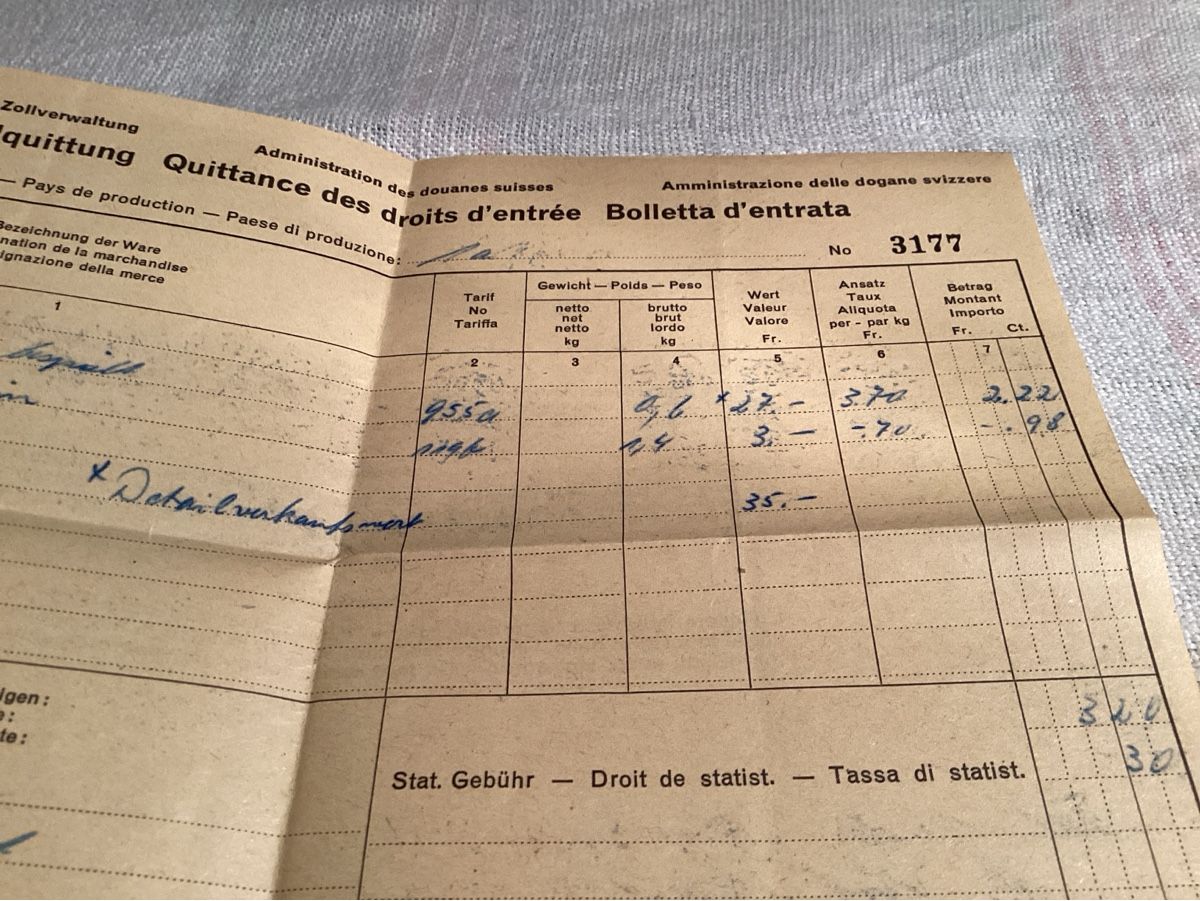 Zollverwaltung Administration des douanes suisses Amministrazione delle dogane svizzere
quittung Quittance des droits d'entrée Bolletta d'entrata
— Pays de production — Paese di produzione:
No 3177
Bezeichnung der Ware
nation de la marchandise
ignazione della merce
1
Tarif
No
Tariffa
2
Gewicht — Poids — Peso
netto
net
netto
kg
3
brutto
brut
lordo
kg
4
Wert
Valeur
Valore
Fr.
5
Ansatz
Taux
Aliquota
per - par kg
Fr.
6
Betrag
Montant
Importo
Fr. Ct.
7
955a 0,6 * 27.- 3.70 2.22
1,4 3.— -.70 -.98
* Detailverkaufswert 35.-
igen:
e:
te:
3 20
Stat. Gebühr — Droit de statist. — Tassa di statist. 30